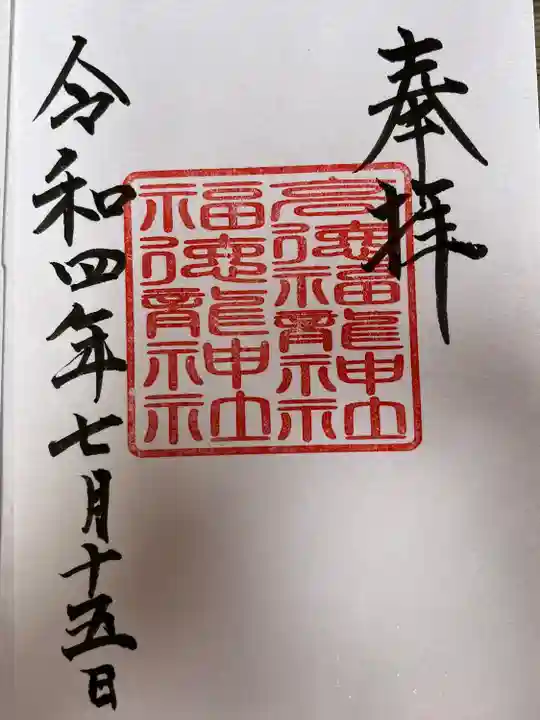 奉拝
福龍神社
福徳龍神社
令和四年七月十五日